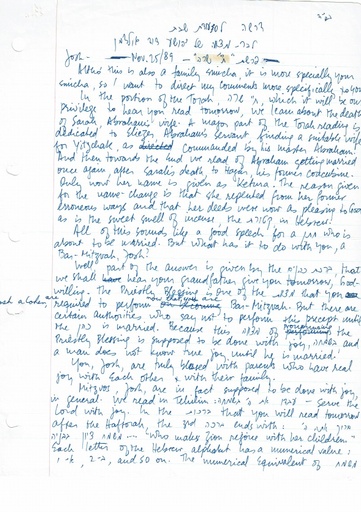 ב"ה
דרשה לסעודת שבת
לבר-מצוה של יהושע
Josh - Nov. 25/89 - פרשת "חיי שרה" -
Altho' this is also a family simcha, it is more specially your
simcha, so I want to direct my comments more specifically to you.
In the portion of the Torah, חיי שרה, which it will be our
privilege to hear you read tomorrow, we learn about the death
of Sarah, Abraham's wife. A major part of the Torah reading is
dedicated to Eliezer, Abraham's servant finding a suitable wife
for Yitzchak, as directed commanded by his master Abraham.
And then towards the end we read of Abraham getting married
once again after Sarah's death to Hagar, his former concubine.
Only now her name is given as Ketura. The reason given
for the name change is that she repented from her former
erroneous ways and that her deeds were now as pleasing to
as is the sweet smell of incense, the קטורת in Hebrew!
All of this sounds like a good speech for a חתן who is
about to be married. But what has it to do with you, a
Bar-Mitzvah, Josh?
Well, part of the answer is given by the ברכת כהנים that
we shall hear your grandfather give you tomorrow, God-
willing. The Priestly Blessing is one of the מצוות that you
required to perform Bar-Mitzvah. But there are
certain authorities who say not to perform this precept until
the כהן is married. Because this מצוה of pronouncing the
Priestly blessing is supposed to be done with joy, בשמחה, and
a man does not know true joy until he is married.
You, Josh, are truly blessed with parents who have real
joy with each other & with their family.
Mitzvos, Josh, are in fact supposed to be done with joy,
in general. We read in Tehilim: עבדו את ה' בשמחה - serve the
Lord with joy. In the ברכות that you will read tomorrow
after the Haftorah, the ברכה ends with:
ברוך אתה ה' משמח ציון בבניה - "Who makes Zion rejoice with her children."
Each letter of the Hebrew alphabet has a numerical value:
א-1, ב-2, and so on. The numerical equivalent of משמח